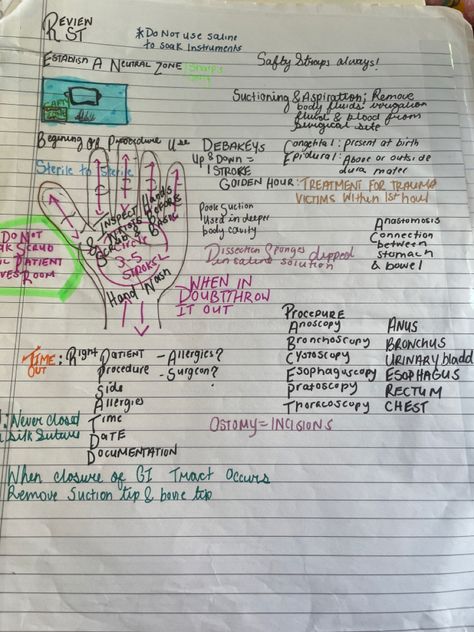 REVIEW
RST
*DO NOT use saline
to soak instruments
ESTABLISH A NEUTRAL ZONE
Safty Straps always!
Suctioning & Aspiration; Remove
body fluids irrigation
fluid & blood from
surgical site
Begining Of Procedure Use
Sterile to Sterile
DEBAKEYS
UP & DOWN =
1 STROKE
Congetital: present at birth
Epidural: Above or outside
dura mater
GOlDEN HOUR: TREATMENT FOR TRAUMA
VICTIMS Within 1st hour
INSPECT Hands
3-5
STROKES
Hand Wash
Poole Suction
Used in deeper
body cavity
Anastomosis
Connection
between
stomach
& bowel
Dissection Sponges dipped
in saline solution
DO NOT
PATIENT
ROOM
WHEN IN
DOUBT/THROW
IT OUT
PROCEDURE
Anoscopy ANUS
Bronchoscopy BRONCHUS
Cystoscopy URINARY bladd
Esophaguscopy ESOPHAGUS
Protoscopy RECTUM
Thoracoscopy CHEST
TIME OUT: Right PATIENT - Allergies?
Procedure - Surgeon?
Side
Allergies
Time
DATE
DOCUMENTATION
Never closed
Silk Suture
OSTOMY = INCISIONS
When closure of GI Tract Occurs
Remove Suction tip & bone tip